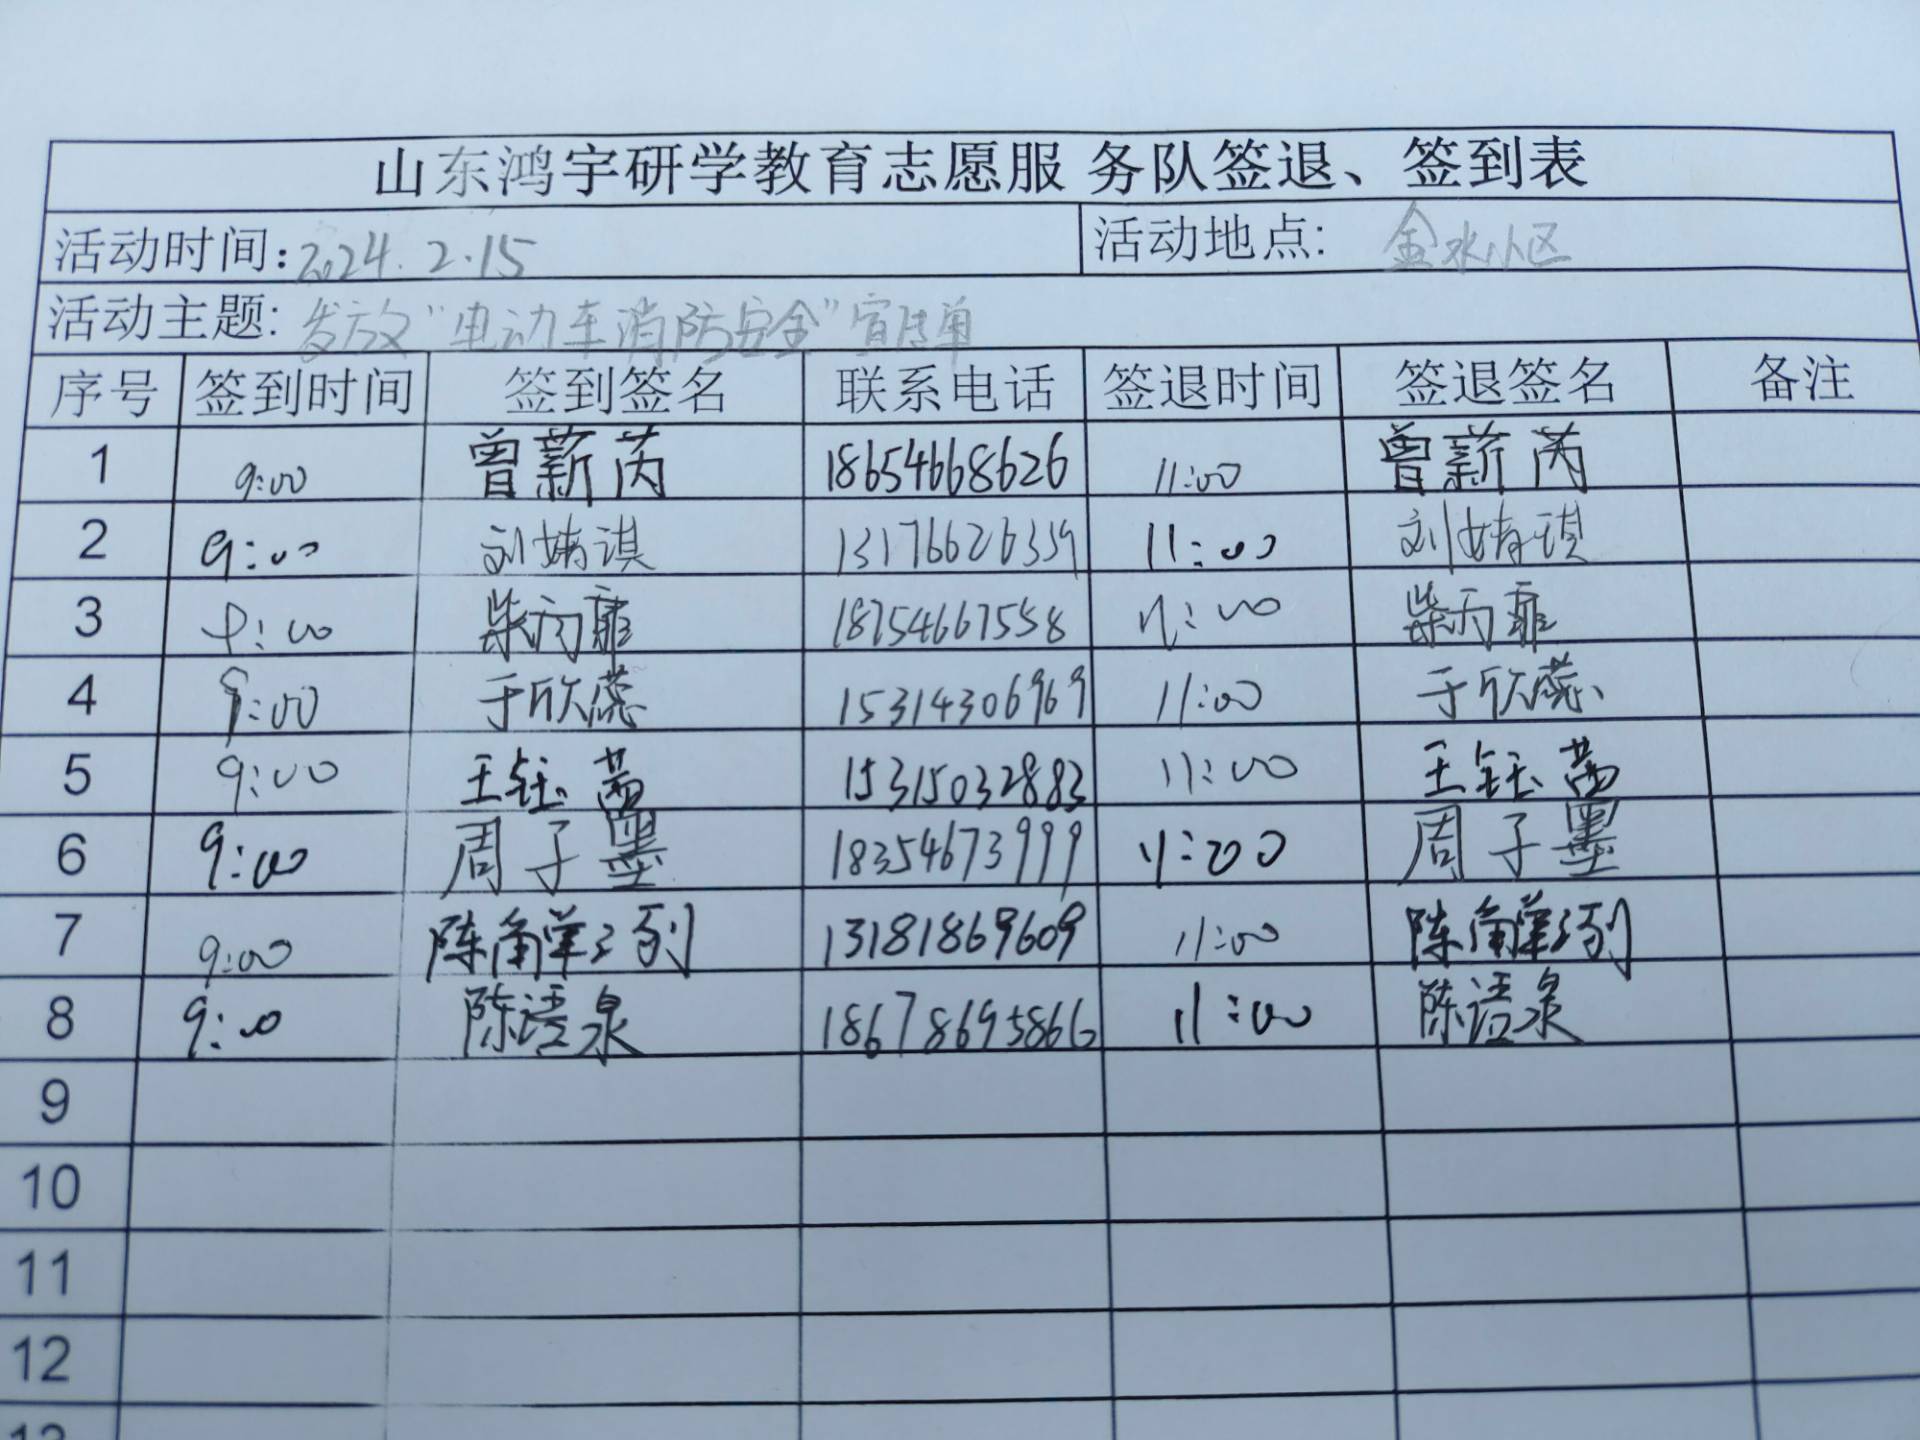 山东鸿宇研学教育志愿服 务队签退、签到表
活动时间:2024.2.15 活动地点: 金水小区
活动主题: 发放“电动车消防安全”宣传单
序号 签到时间 签到签名 联系电话 签退时间 签退签名 备注
1 9:00 曾薪芮 18654668626 11:00 曾薪芮
2 9:00 刘婧淇 13176626339 11:00 刘婧琪
3 9:00 柴雨霏 18754667558 11:00 柴雨霏
4 9:00 于欣蕊 15314306969 11:00 于欣蕊
5 9:00 王钰茜 15315032883 11:00 王钰茜
6 9:00 周子墨 18354673999 11:00 周子墨
7 9:00 陈 13181869609 11:00 陈
8 9:00 陈语泉 18678695866 11:00 陈语泉
9
10
11
12